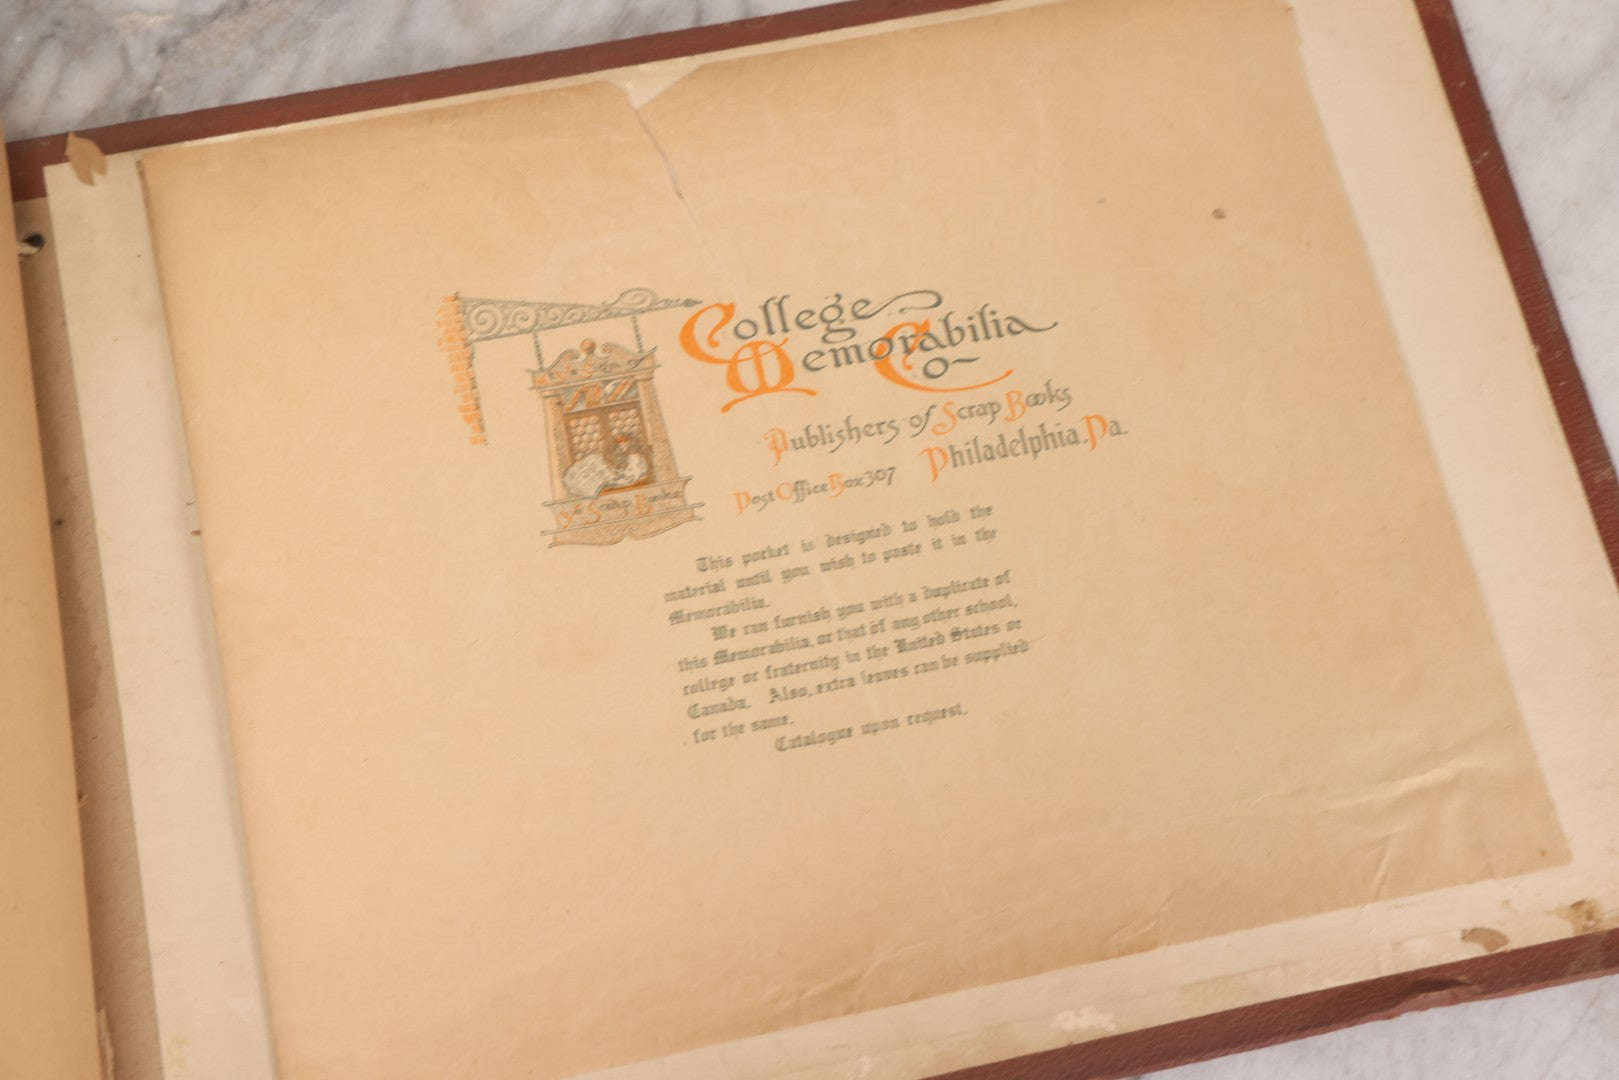 College
Memorabilia
Co
Publishers of Scrap Books
Philadelphia. Pa.
Post Office Box 307
Ye Scrap Books
This pocket is designed to hold the
material until you wish to paste it in the
Memorabilia.
We can furnish you with a duplicate of
this Memorabilia, or that of any other school,
college or fraternity in the United States or
Canada. Also, extra leaves can be supplied
for the same.
Catalogue upon request.